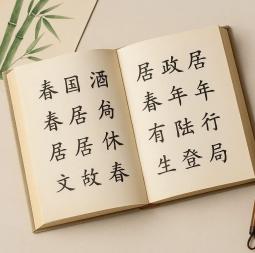 春国酒
春居局
居居休
文故春
居政居
春年年
有陆行
生登局